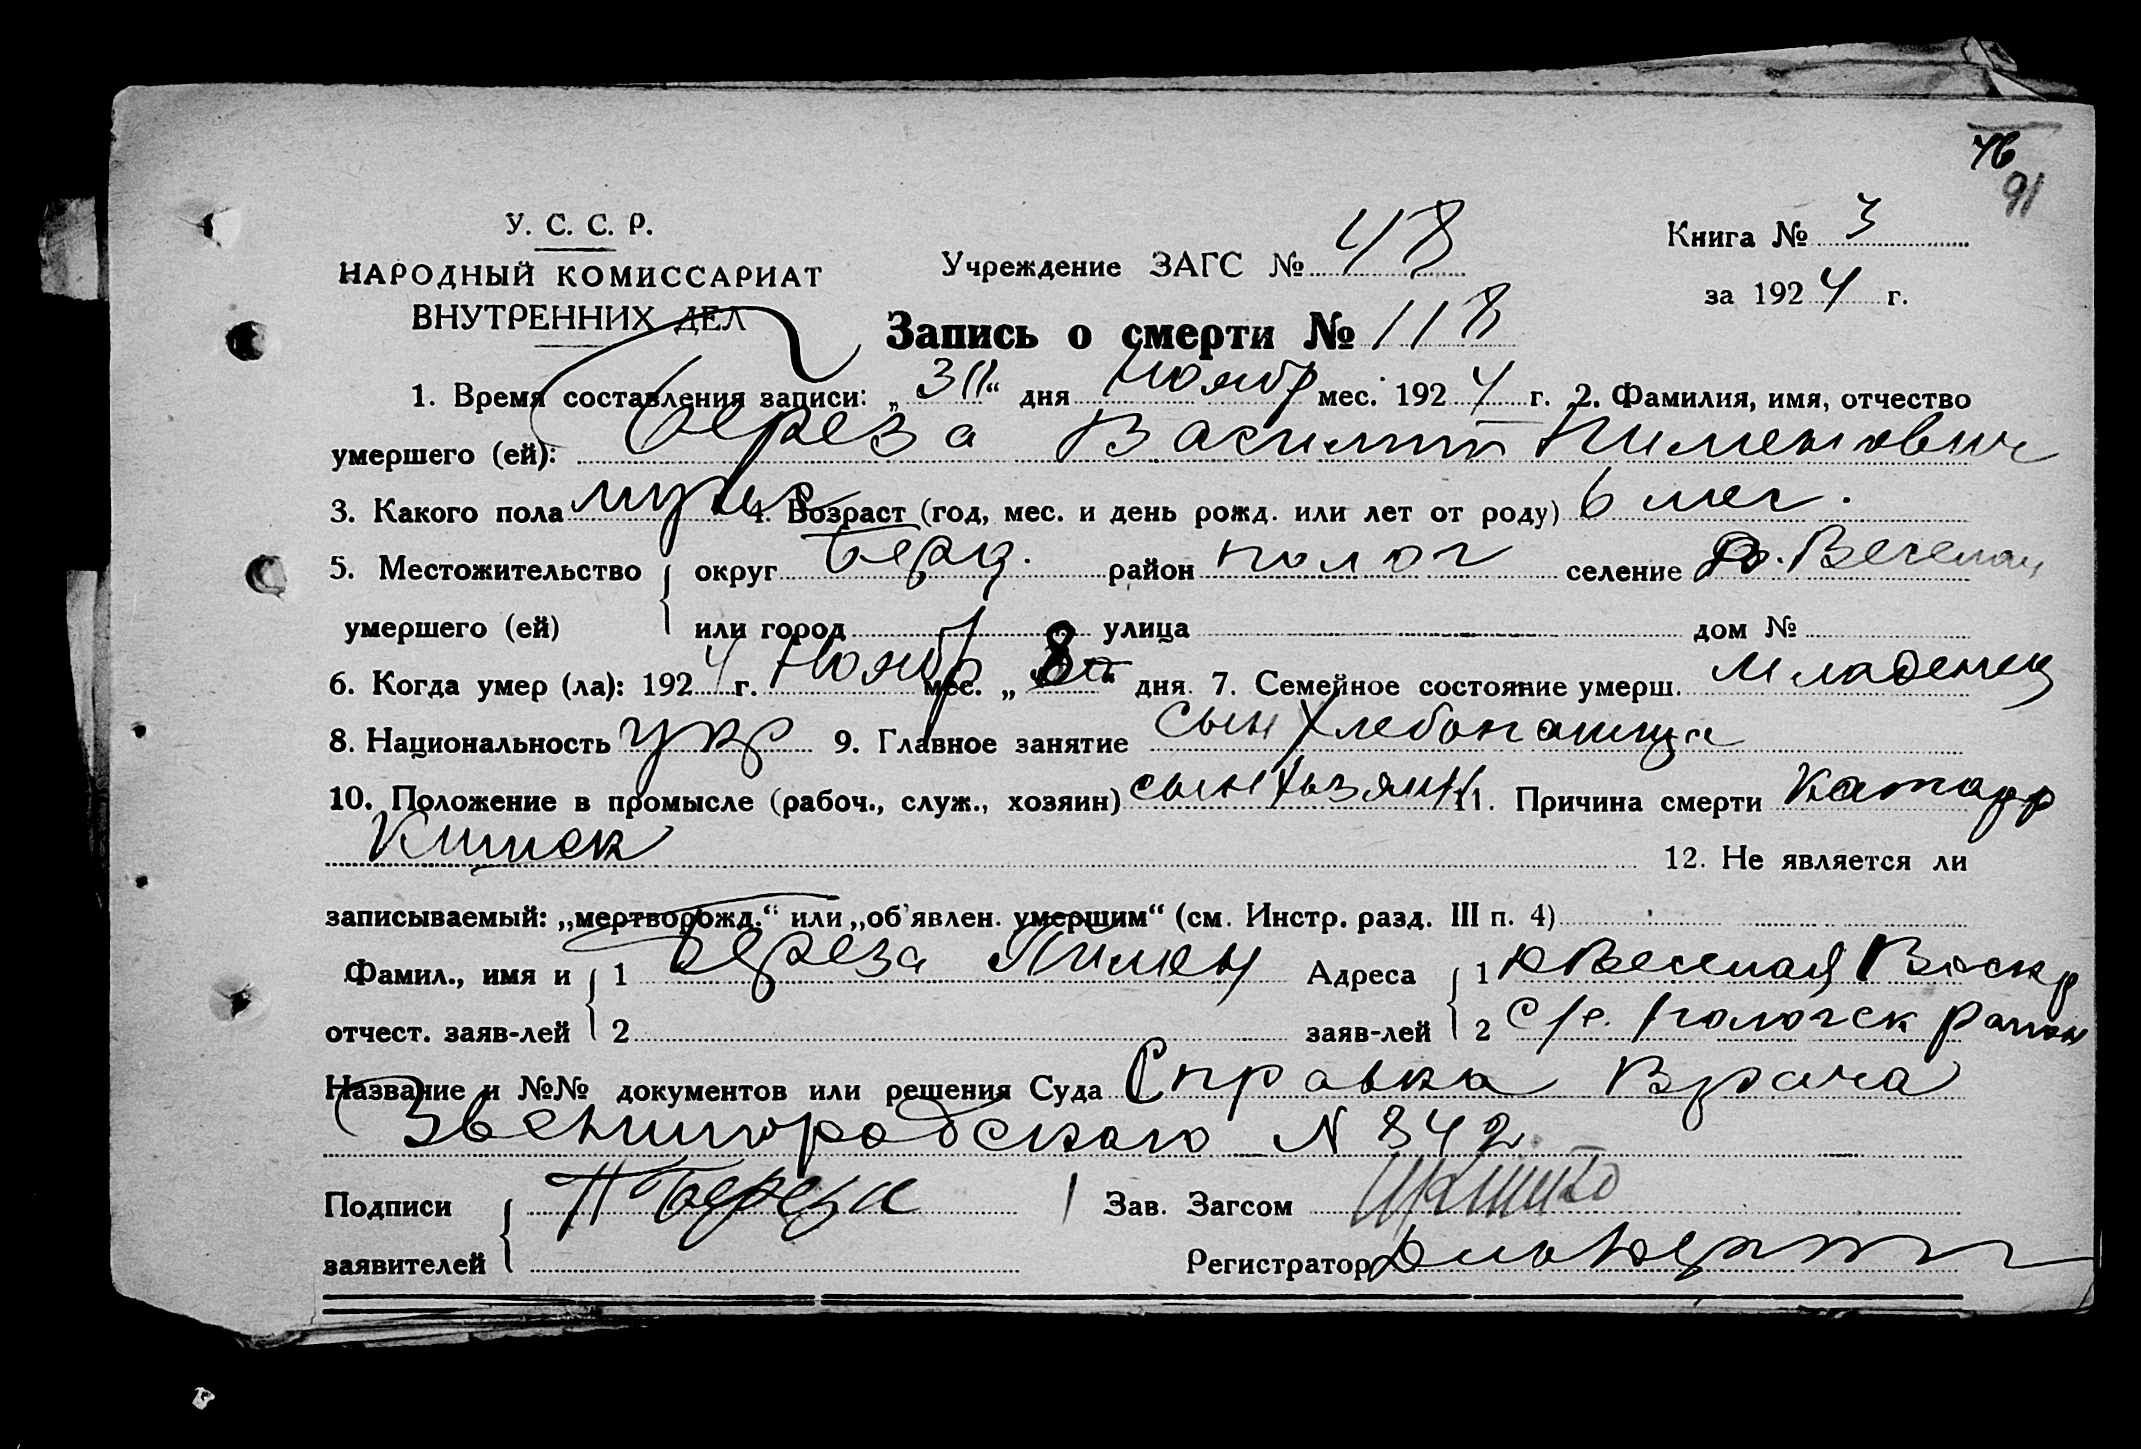 46
91
У. С. С. Р.
НАРОДНЫЙ КОМИССАРИАТ
ВНУТРЕННИХ ДЕЛ
Учреждение ЗАГС № 48
Книга № 3
за 1924 г.
Запись о смерти № 118
1. Время составления записи: „ “ дня Ноябр мес. 1924 г. 2. Фамилия, имя, отчество
умершего (ей): Береза Василий Пименович
3. Какого пола муж 4. Возраст (год, мес. и день рожд. или лет от роду) 6 мес.
5. Местожительство округ Берд. район Полог селение
умершего (ей) или город улица дом №
6. Когда умер (ла): 1924 г. Ноябр мес. „ 8 “ дня. 7. Семейное состояние умерш. Младенец
8. Национальность укр 9. Главное занятие сын Хлебопашца
10. Положение в промысле (рабоч., служ., хозяин) сын хозяин 11. Причина смерти Катарр
Кишек
12. Не является ли
записываемый: „мертворожд.“ или „об'явлен. умершим“ (см. Инстр. разд. III п. 4)
Фамил., имя и 1 Береза Пимен Адреса 1 Веселая Воскр
отчест. заяв-лей 2 заяв-лей 2 с/с. Пологск район
Название и №№ документов или решения Суда Справка Врача
Звенигородского N 842
Подписи П Береза Зав. Загсом
заявителей Регистратор